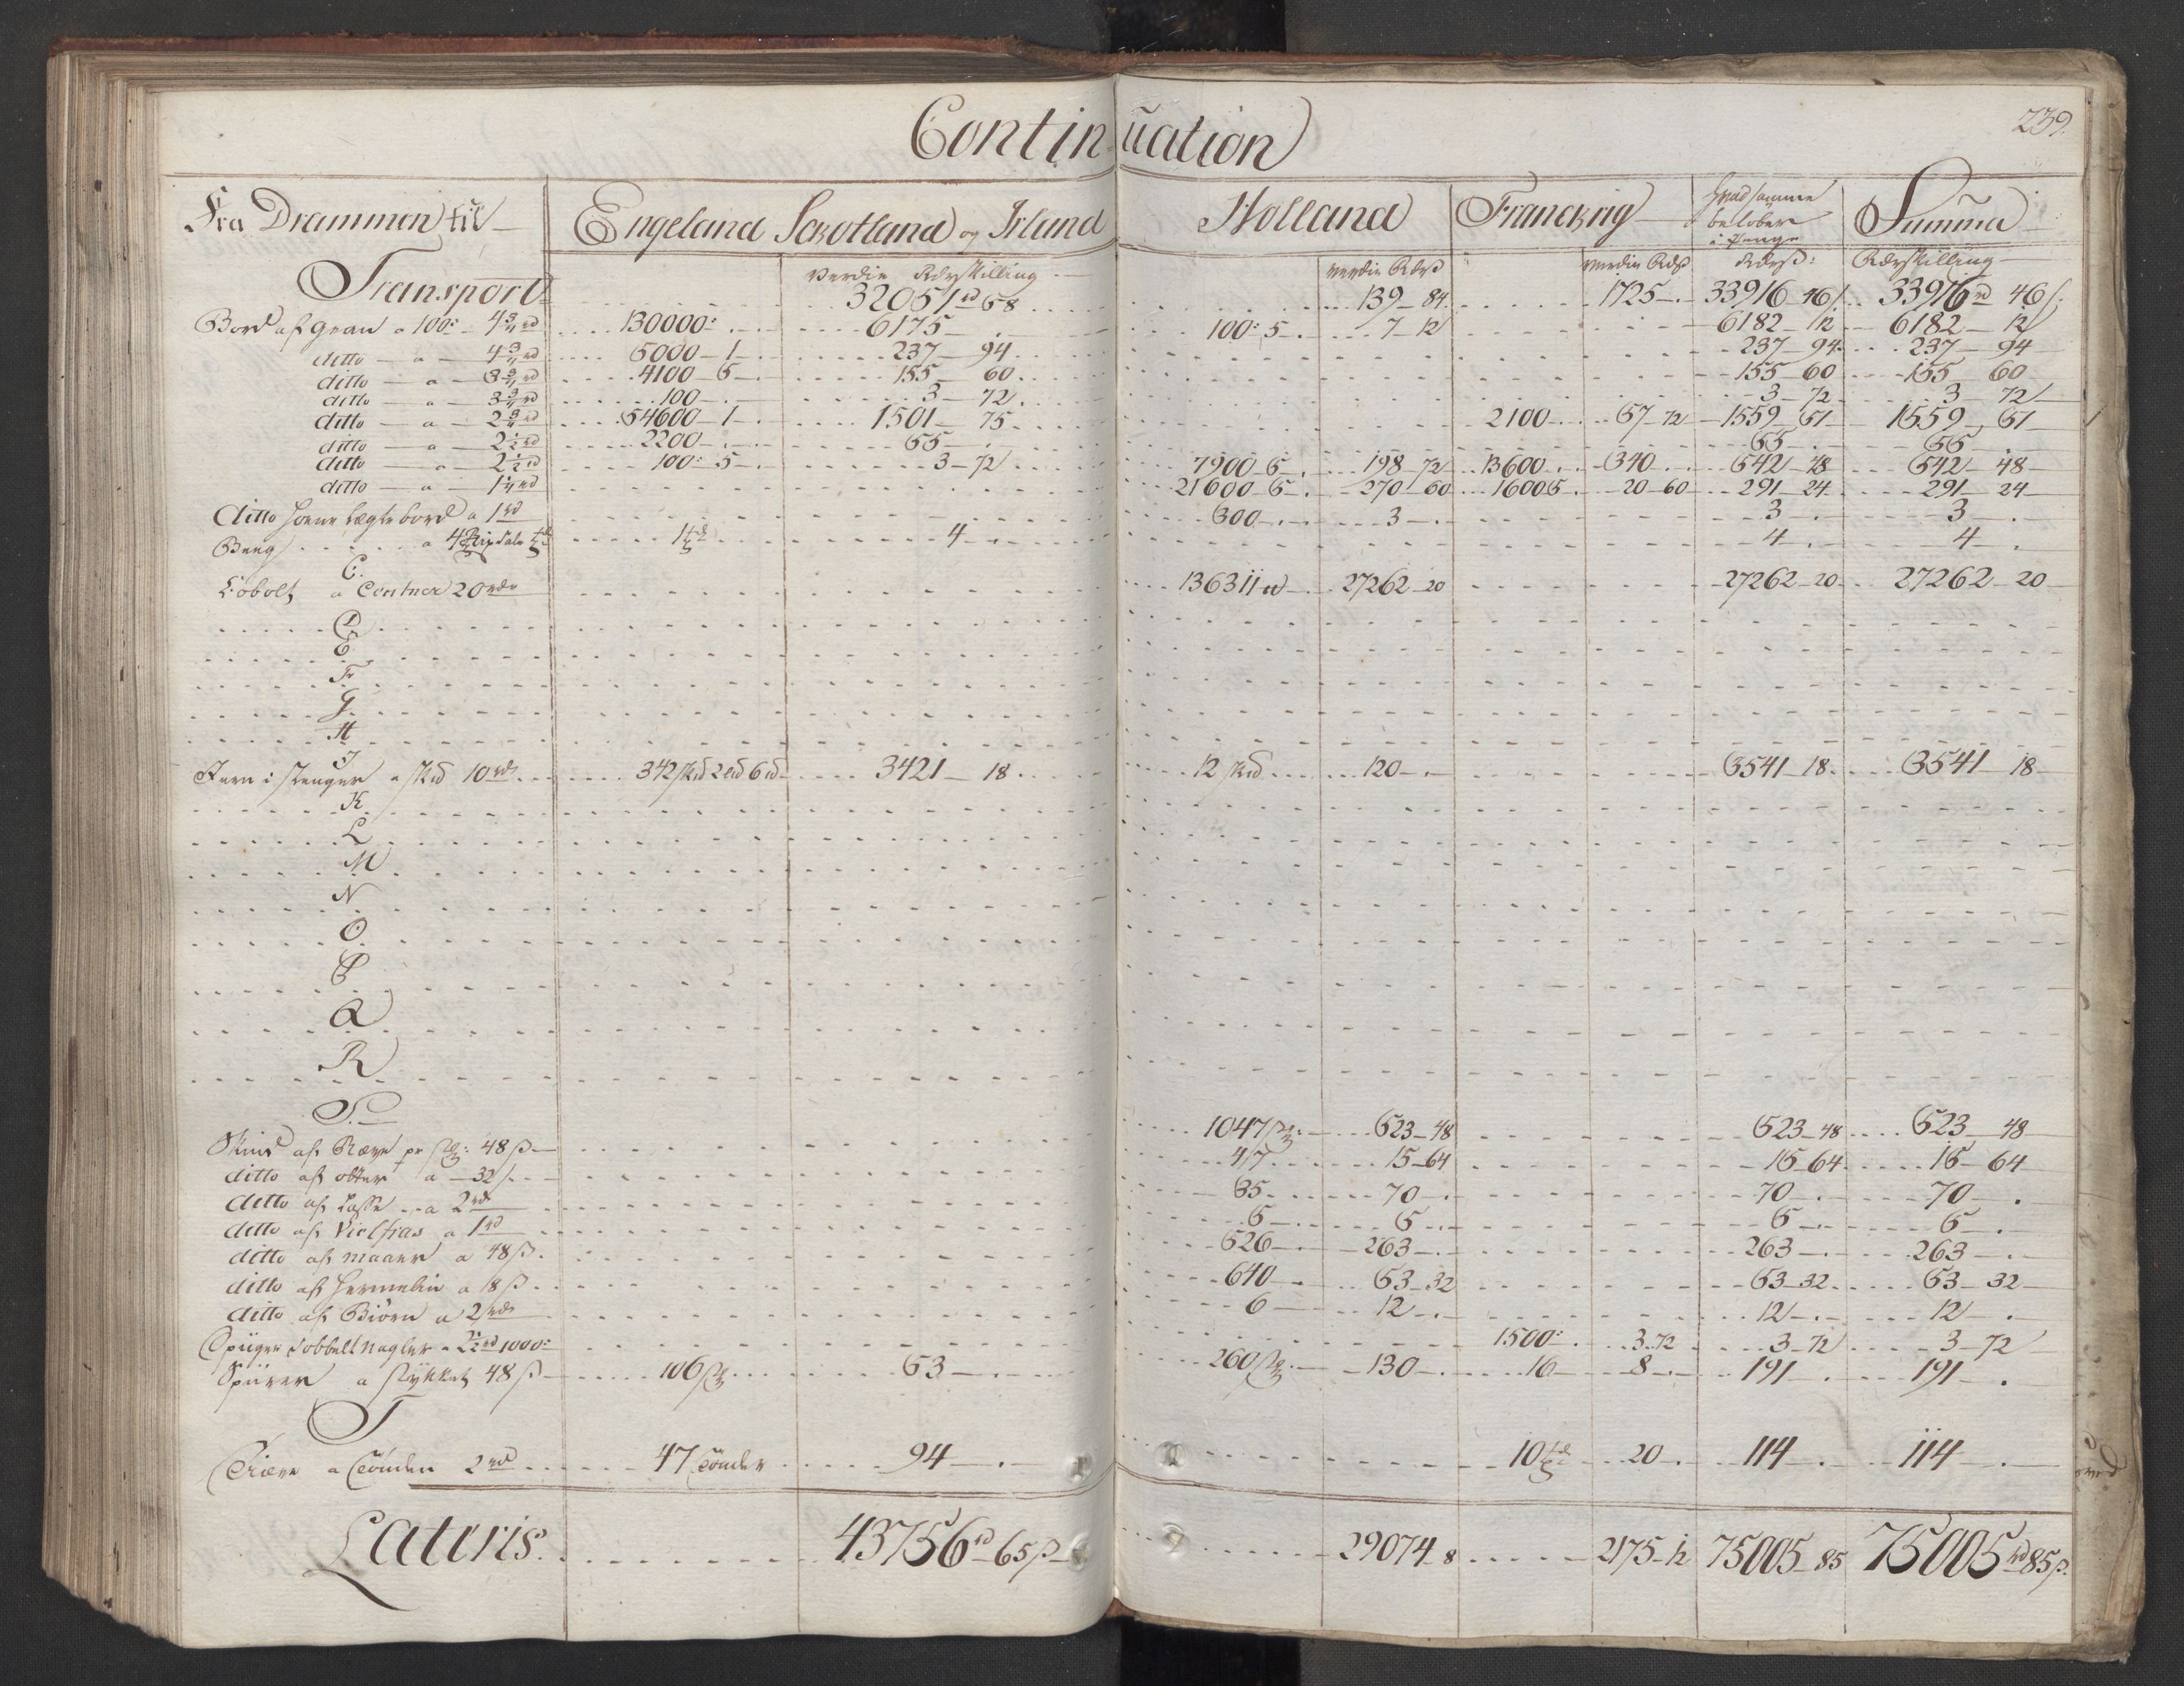 Continuation
239.
Fra Drammen til Engeland Scrotland og Irland Holland Franckrig hvad samme beløber i Penge Summa
Verdie Rdrskilling Verdie Rdrß Verdie Rdrß Rdrß: Rdrskilling
Transport 32051 rd 58 139 - 84 1725 - . 33916 - 46 ß 33916 rd 46 ß.
Bord af gran a 100: 4 3/4 rd 130000: 6175 - . 100: 5 - . 7 - 12 6182 - 12 6182 - 12
ditto - a - 4 3/4 rd 5000 - 1 - . 237 - 94 237 - 94 237 - 94
ditto - a - 3 3/4 rd 4100 - 5 - . 155 - 60 155 - 60 155 - 60
ditto - a - 3 3/4 rd 100 - . 3 - 72 3 - 72 3 - 72
ditto - a - 2 3/4 rd 54600 - 1 - . 1501 - 75 2100 57 - 72 1559 - 51 1559 - 51
ditto - a - 2 1/2 rd 2200 - . 55 - . 55 - . 55 - .
ditto - a - 2 1/2 rd 100: 5 - . 3 - 72 7900 5 - . 198 - 72 13600 340 542 - 48 542 - 48
ditto - a - 1 1/4 rd 21600 - 5 - . 270 - 60 1600 5 20 - 60 291 - 24 291 - 24
ditto lægtebord a 1 rd 300 - . 3 - . 3 - . 3 - .
Beeg a 4 Rixdaler tde 1 tde 4 - . 4 - . 4 - .
C.
Cobolt a Centner 20 rdr 136311 td 27262 - 20 27262 - 20 27262 - 20
D
E
F
G
H
J
Jern i stænger a skd 10 rdr 342 skd 2 Ld 6 td 3421 - 18 12 skd 120 - . 3541 - 18 3541 - 18
K
L
M
N
O
P
Q
R
S.
Skind af Ræve pr stk: 48 ß 1047 stk: 523 - 48 523 - 48 523 - 48
ditto af otter a - 32 ß 47 15 - 64 15 - 64 15 - 64
ditto af Losse - a 2 rdr 35 70 - . 70 - . 70 - .
ditto af Vielfras a 1 rd 5 - . 5 - . 5 - . 5 - .
ditto af maaer a 48 ß. 526 - . 263 - . 263 - . 263 - .
ditto af Hermelin a 8 ß 640 - . 53 - 32 53 - 32 53 - 32
ditto af Biørn a 2 rdr 6 12 - . 12 - . 12 - .
Spiiger dobbelt Nagler a 2 1/2 rd 1000: 1500: 3 - 72 3 - 72 3 - 72
Spiirer a stykket 48 ß 106 stk 53 - . 260 stk 130 - . 16 8 - . 191 - . 191 - .
T
Tiære a Tønden 2 rd 47 Tønder 94 - . 10 tde 20 - . 114 - . 114 - .
Lateris. 43756 rd 65 ß 29074 - 8 2175 - 12 75005 - 85 75005 rd 85 ß.